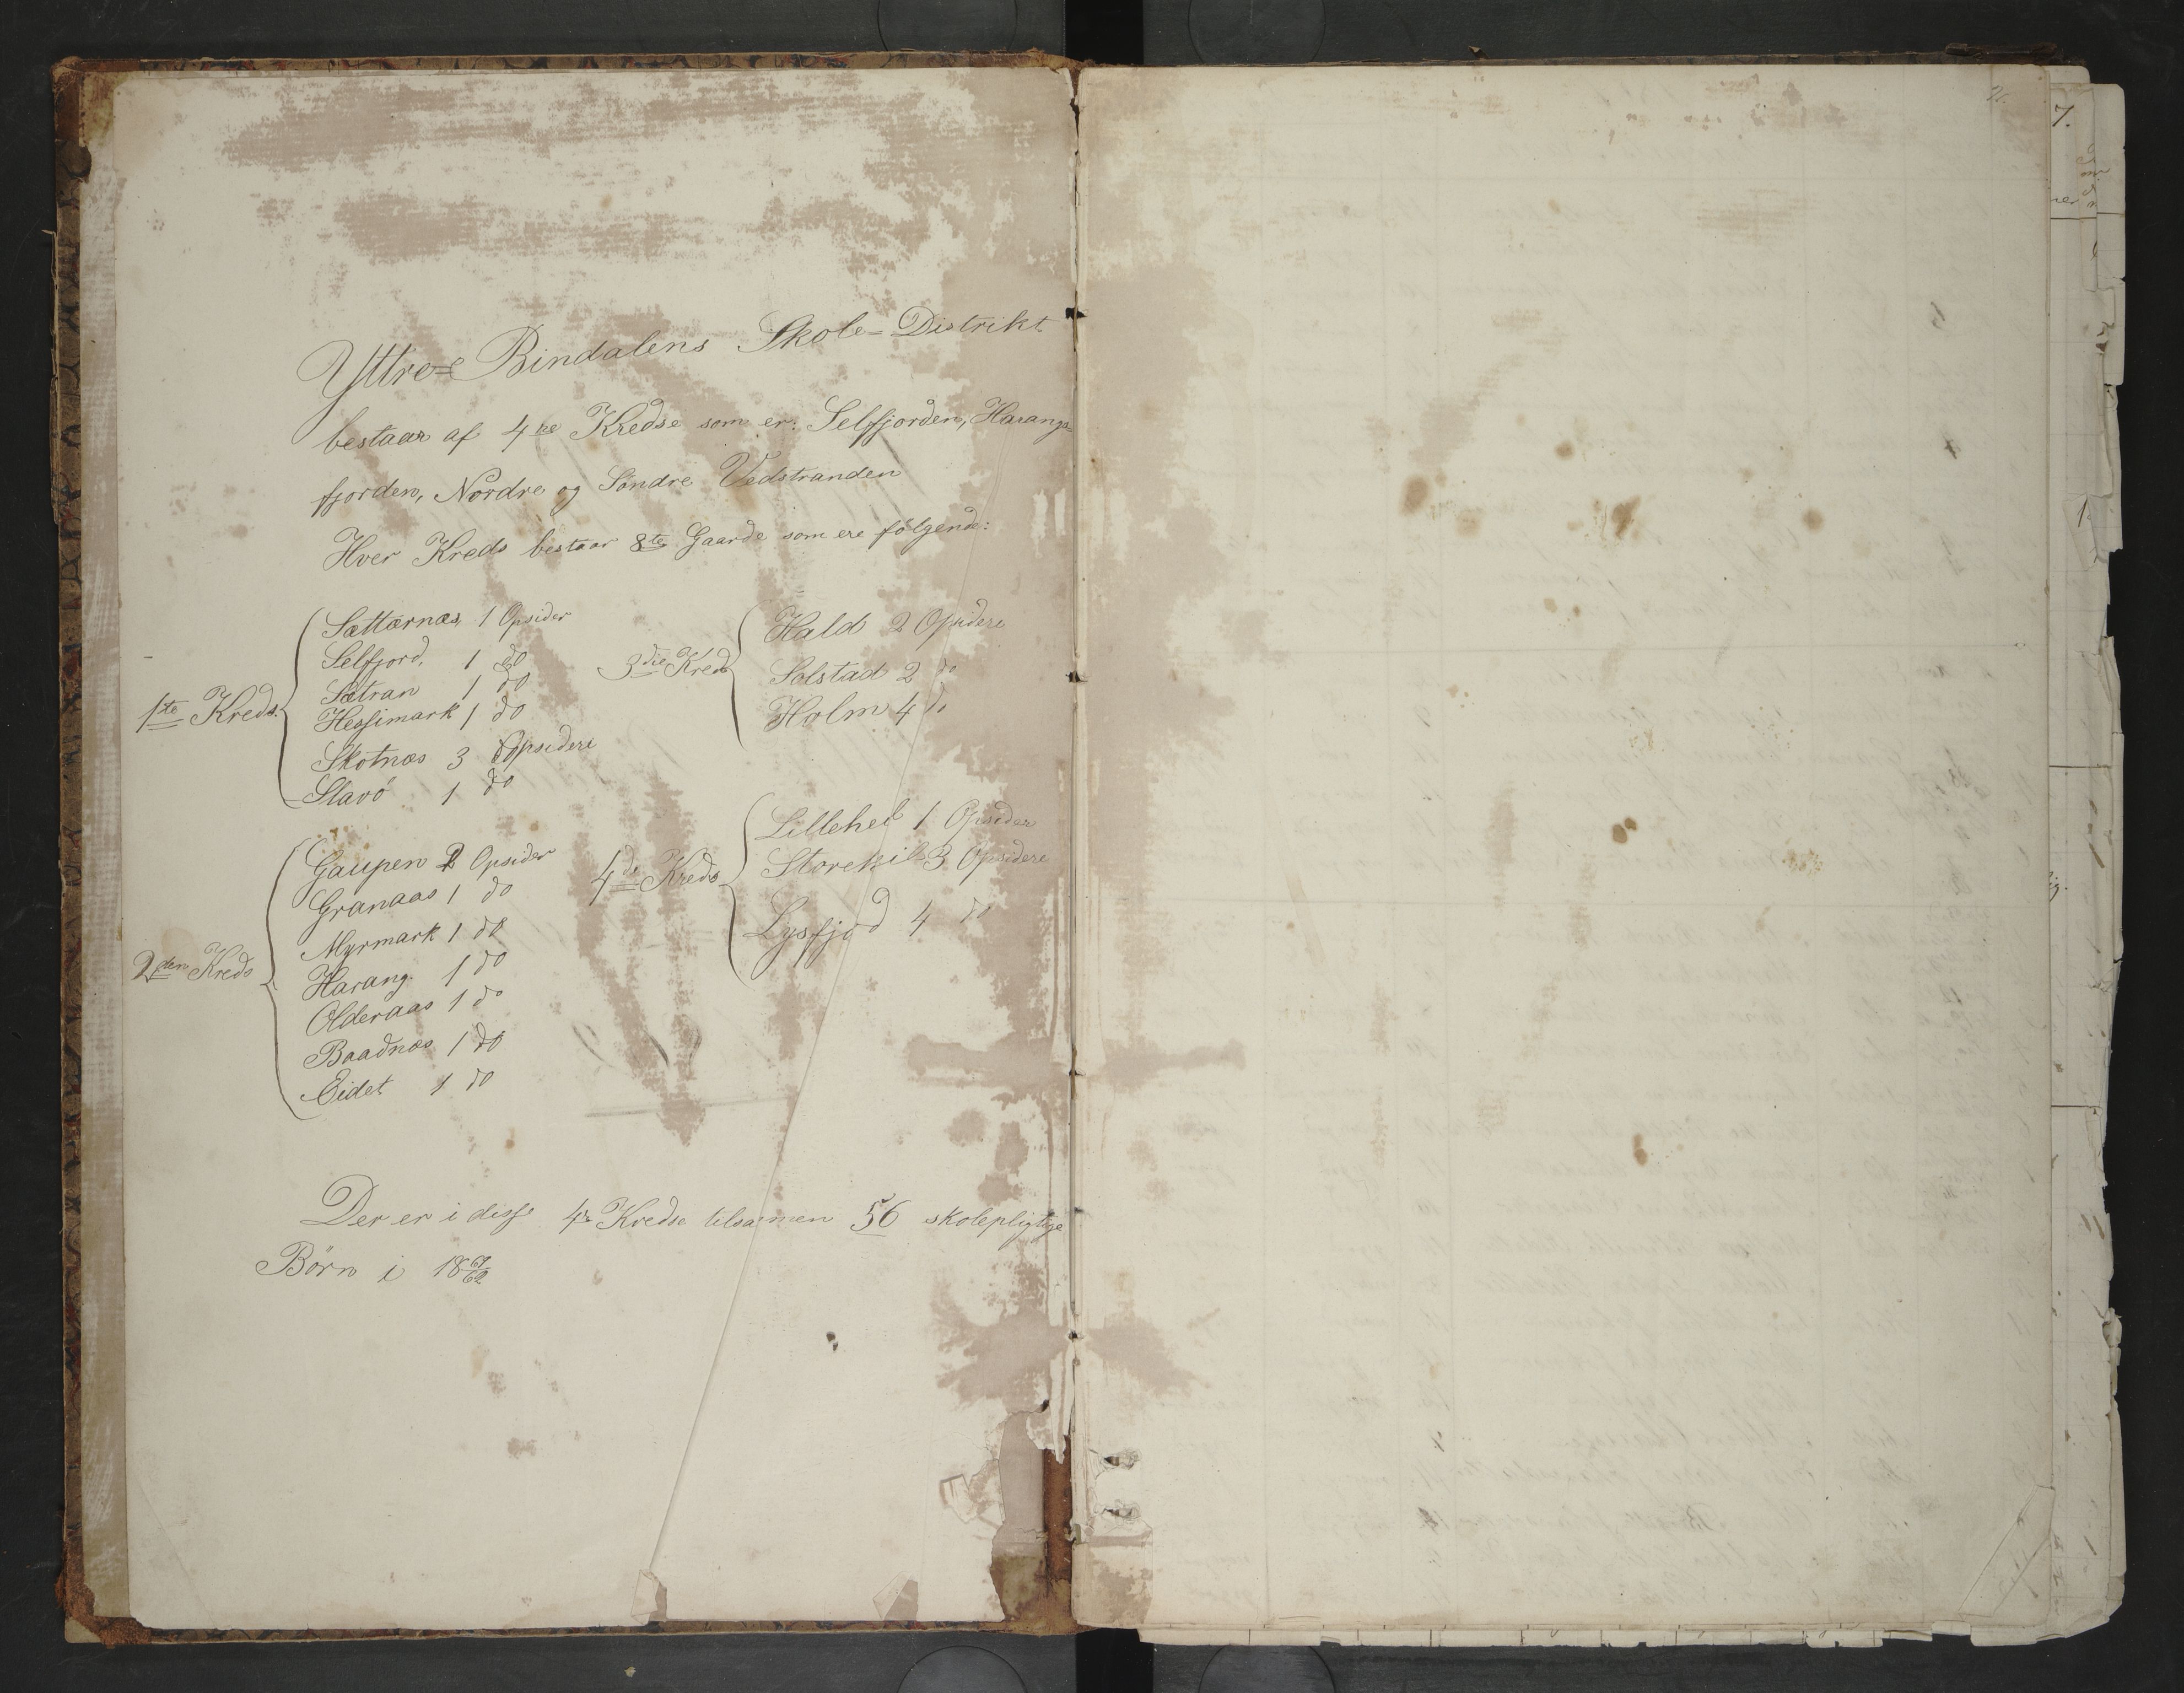 Yttre=Bindalens Skole=Distrikt
bestaar af 4re Kredse som er: Selfjorden, Harangs=
fjorden, Nordre og Söndre Vedstranden
Hver Kreds bestaar 8te Gaarde som ere følgende:
1ste Kreds.
Sættærnæs 1 Opsider
Selfjord, 1 do
Sætran 1 do
Hessimark 1 do
Skotnæs 3 Opsidere
Slavö 1 do
2den Kreds
Gaupen 2 Opsider
Granaas 1 do
Myrmark 1 do
Harang 1 do
Olderaas 1 do
Baadnæs 1 do
Eidet 1 do
3die Kreds
Hald 2 Opsidere
Solstad 2 do
Holm 4 do
4de Kreds
Lilleheil 1 Opsider
Storeheil 3 Opsidere
Lysfjod 4 do
Der er i disse 4re Kredse tilsamen 56 skolepligtige
Börn i 1861/62
7.